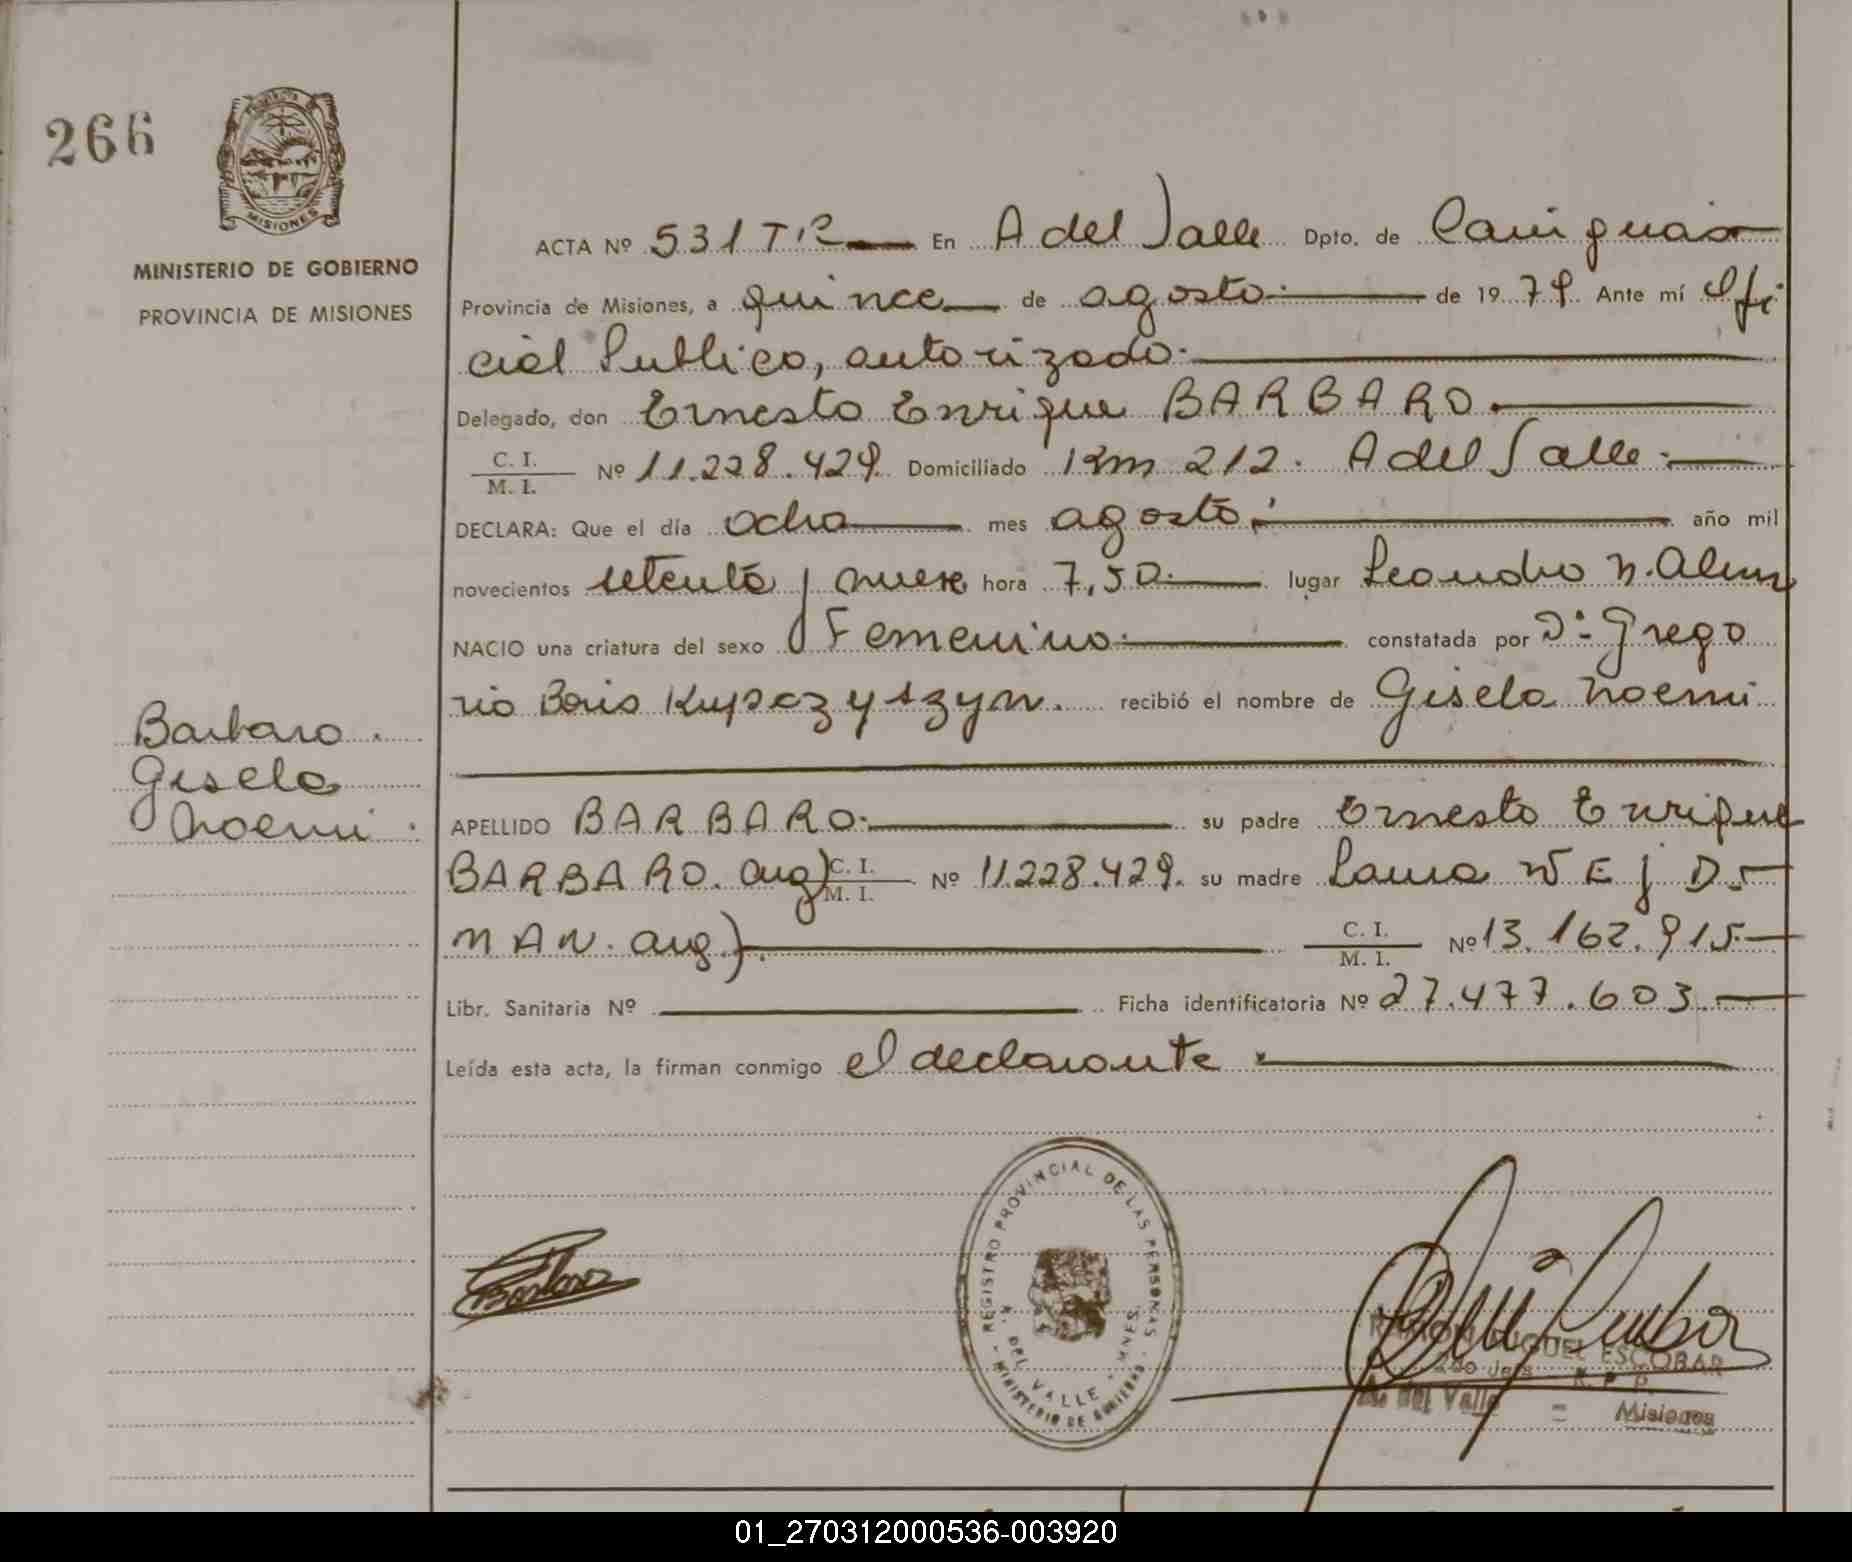 266
PROVINCIA DE
MISIONES
MINISTERIO DE GOBIERNO
PROVINCIA DE MISIONES
ACTA Nº 531 TR En A del Valle Dpto. de Cainguas
Provincia de Misiones, a quince de agosto de 1979. Ante mí Ofi
cial Publico, autorizado.
Delegado, don Ernesto Enrique BARBARO.
C. I.
M. I. Nº 11.228.429. Domiciliado Km 212. A del Valle.
DECLARA: Que el día ocho mes agosto. año mil
novecientos setenta y nueve hora 7,50. lugar Leandro N. Alem
NACIO una criatura del sexo Femenino. constatada por Dr. Grego
rio Boris recibió el nombre de Gisela Noemi
Barbaro.
Gisela
Noemi.
APELLIDO BARBARO. su padre Ernesto Enrique
BARBARO. arg) C. I.
M. I. Nº 11.228.429. su madre Laura WEjD-
MAN. arg). C. I.
M. I. Nº 13.162.915.
Libr. Sanitaria Nº Ficha identificatoria Nº 27.477.603.
Leída esta acta, la firman conmigo el declarante.
REGISTRO PROVINCIAL DE LAS PERSONAS
A. DEL VALLE - MNES.
MINISTERIO DE GOBIERNO
Barbaro
RAMON MIGUEL ESCOBAR
2do Jefe R. P. P.
A. del Valle = Misiones
01_270312000536-003920